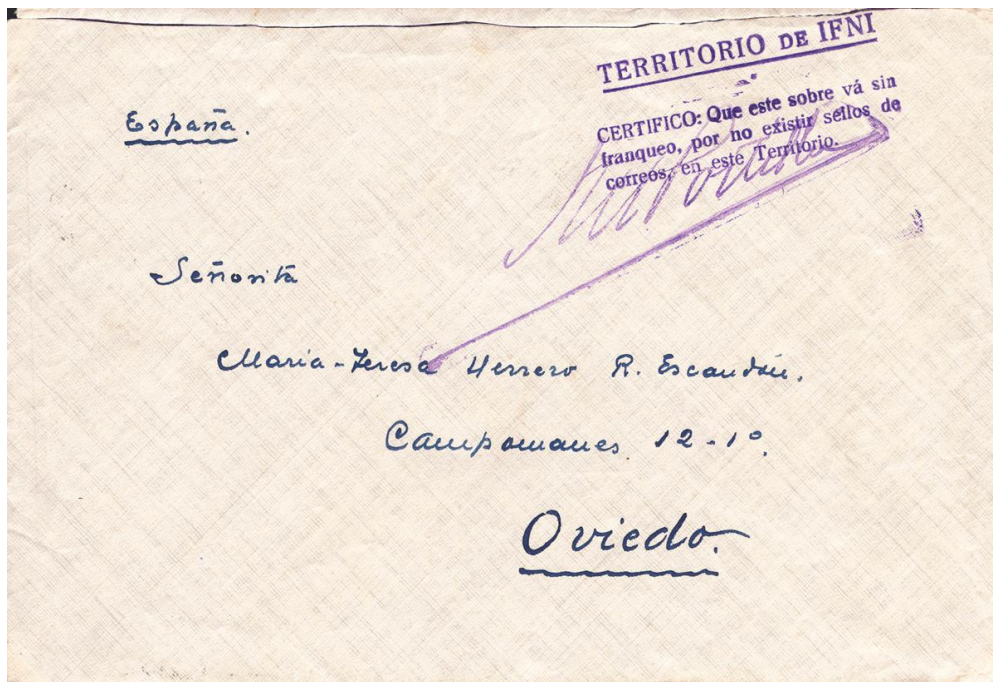 TERRITORIO DE IFNI
CERTIFICO: Que este sobre vá sin
franqueo, por no existir sellos de
correos, en este Territorio.
España.
Señorita
Maria-Teresa Herrero R. Escandón.
Campomanes 12-1º.
Oviedo.